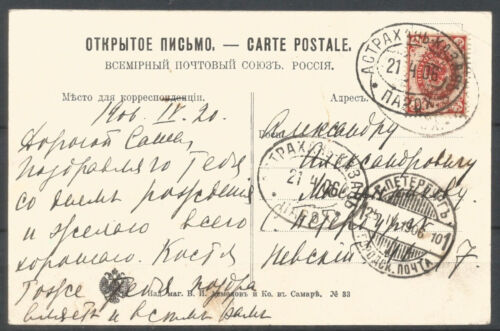 ОТКРЫТОЕ ПИСЬМО. — CARTE POSTALE.
ВСЕМІРНЫЙ ПОЧТОВЫЙ СОЮЗЪ. РОССІЯ.
Мѣсто для корреспонденціи.
Адресъ.
1906 IV 20.
Дорогой Саша,
Поздравляю Тебя
со днемъ рожденія
и желаю всего
хорошаго. Костя
Тоже Тебя поздра
вляетъ и
Александру
Александровичу
Петербургъ
Невскій 7
АСТРАХАНЬ-КАЗАНЬ
21 4 06
ПАРОХ.
АСТРАХАНЬ КАЗАНЬ
21 4 06
С-ПЕТЕРБУРГЪ
1906
ГОРОДСК. ПОЧТА
Изд. маг. В. И. и Ко. въ Самарѣ. № 83